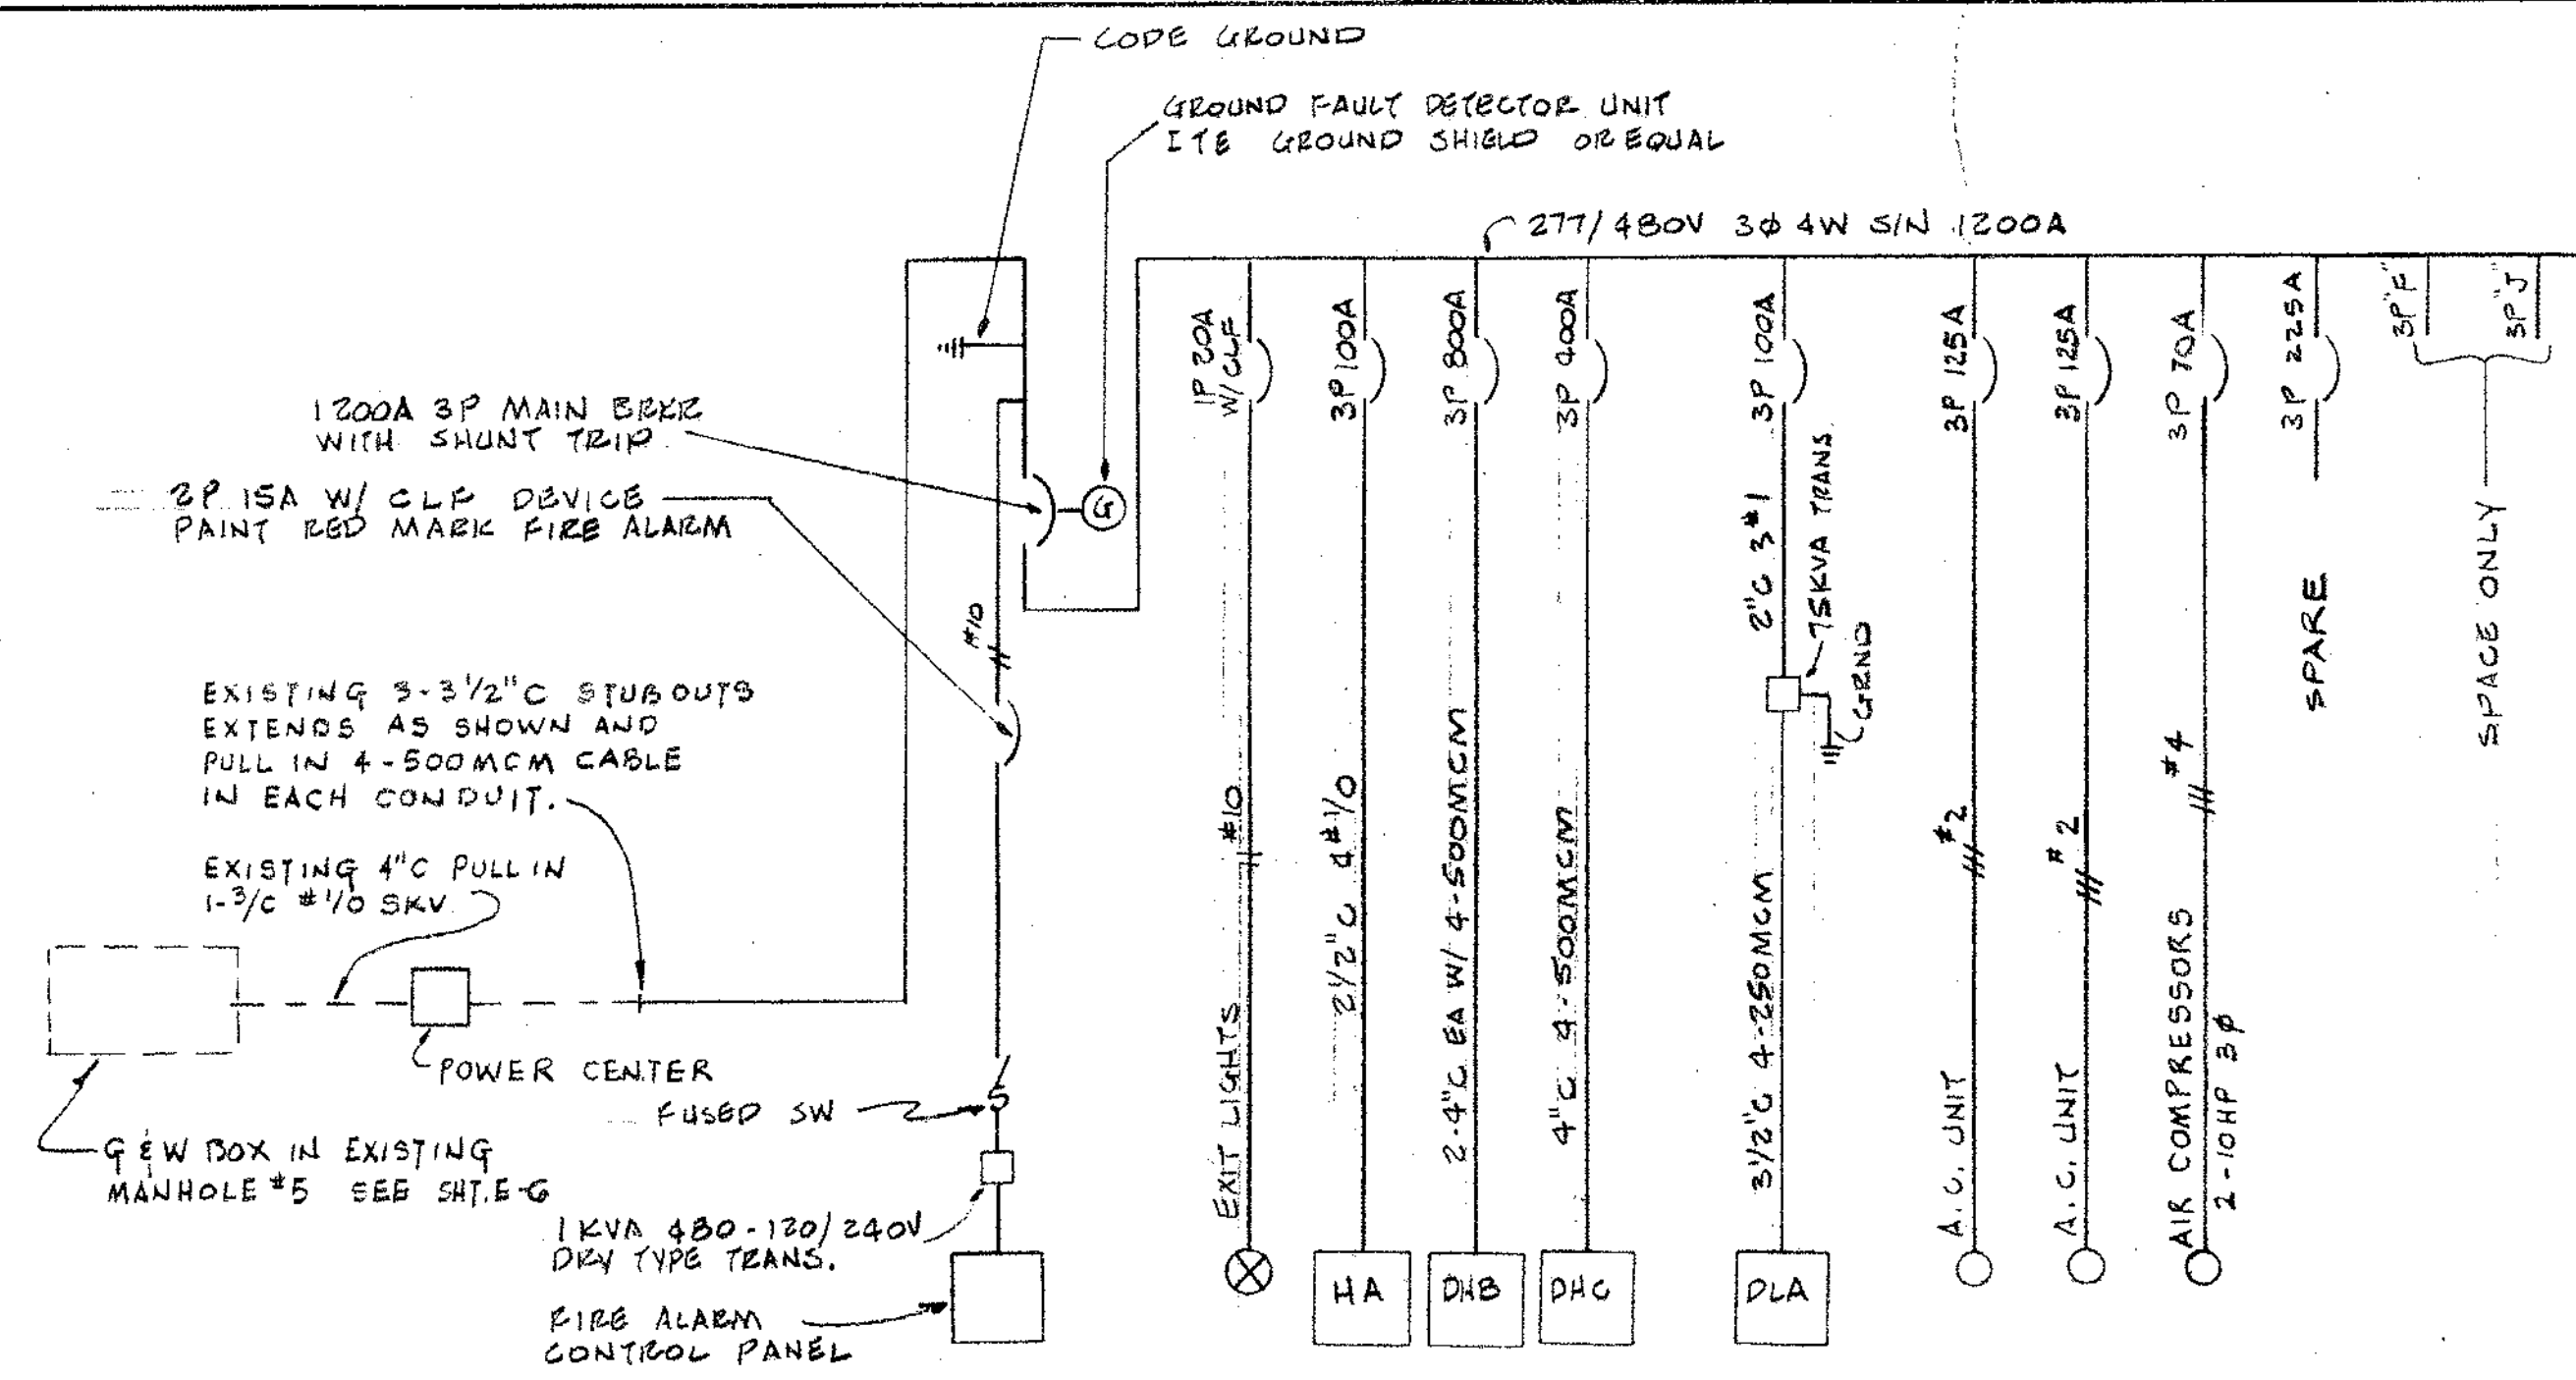 CODE GROUND
GROUND FAULT DETECTOR UNIT
ITE GROUND SHIELD OR EQUAL
277/480V 3Ø 4W S/N 1200A
1200A 3P MAIN BRKR
WITH SHUNT TRIP
2P 15A W/ CLF DEVICE
PAINT RED MARK FIRE ALARM
G
#10
EXISTING 3-3 1/2"C STUBOUTS
EXTENDS AS SHOWN AND
PULL IN 4-500MCM CABLE
IN EACH CONDUIT.
EXISTING 4"C PULL IN
1-3/C #1/0 5KV
POWER CENTER
FUSED SW
G & W BOX IN EXISTING
MANHOLE #5 SEE SHT. E-6
1 KVA 480-120/240V
DRY TYPE TRANS.
FIRE ALARM
CONTROL PANEL
1P 20A
W/CLF
#10
EXIT LIGHTS
3P 100A
2 1/2"C 4#1/0
HA
3P 800A
2-4"C EA W/ 4-500MCM
DHB
3P 400A
4"C 4-500MCM
DHC
3P 100A
2"C 3#1
75KVA TRANS.
GRND
3 1/2"C 4-250MCM
DLA
3P 125A
#2
A.C. UNIT
3P 125A
#2
A.C. UNIT
3P 70A
#4
AIR COMPRESSORS
2-10HP 3Ø
3P 225A
SPARE
3P "F"
3P "J"
SPACE ONLY